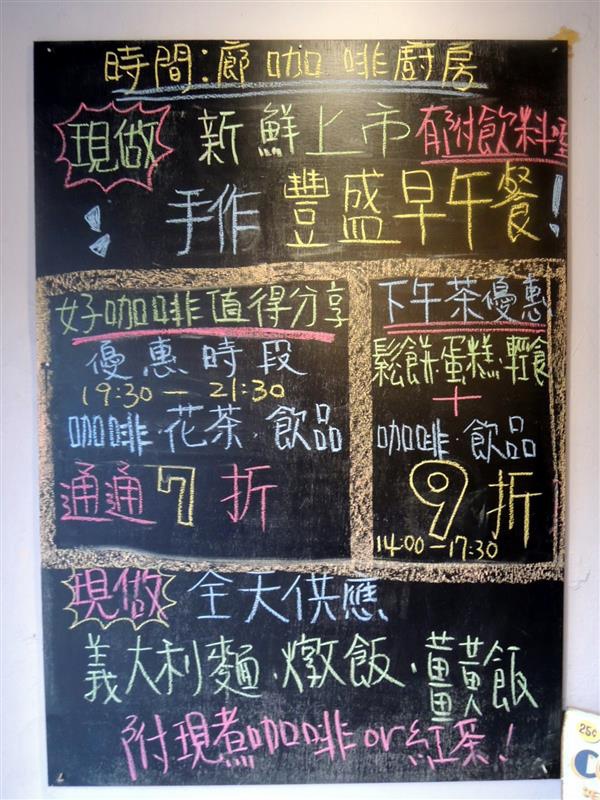 時間:廊咖啡廚房
現做 新鮮上市 有附飲料喔
手作 豐盛早午餐!
好咖啡值得分享
優惠時段
19:30-21:30
咖啡·花茶·飲品
通通7折
下午茶優惠
鬆餅·蛋糕·輕食
+
咖啡·飲品
9折
14:00-17:30
現做 全天供應
義大利麵·燉飯·薑黃飯
附現煮咖啡or紅茶!
25¢